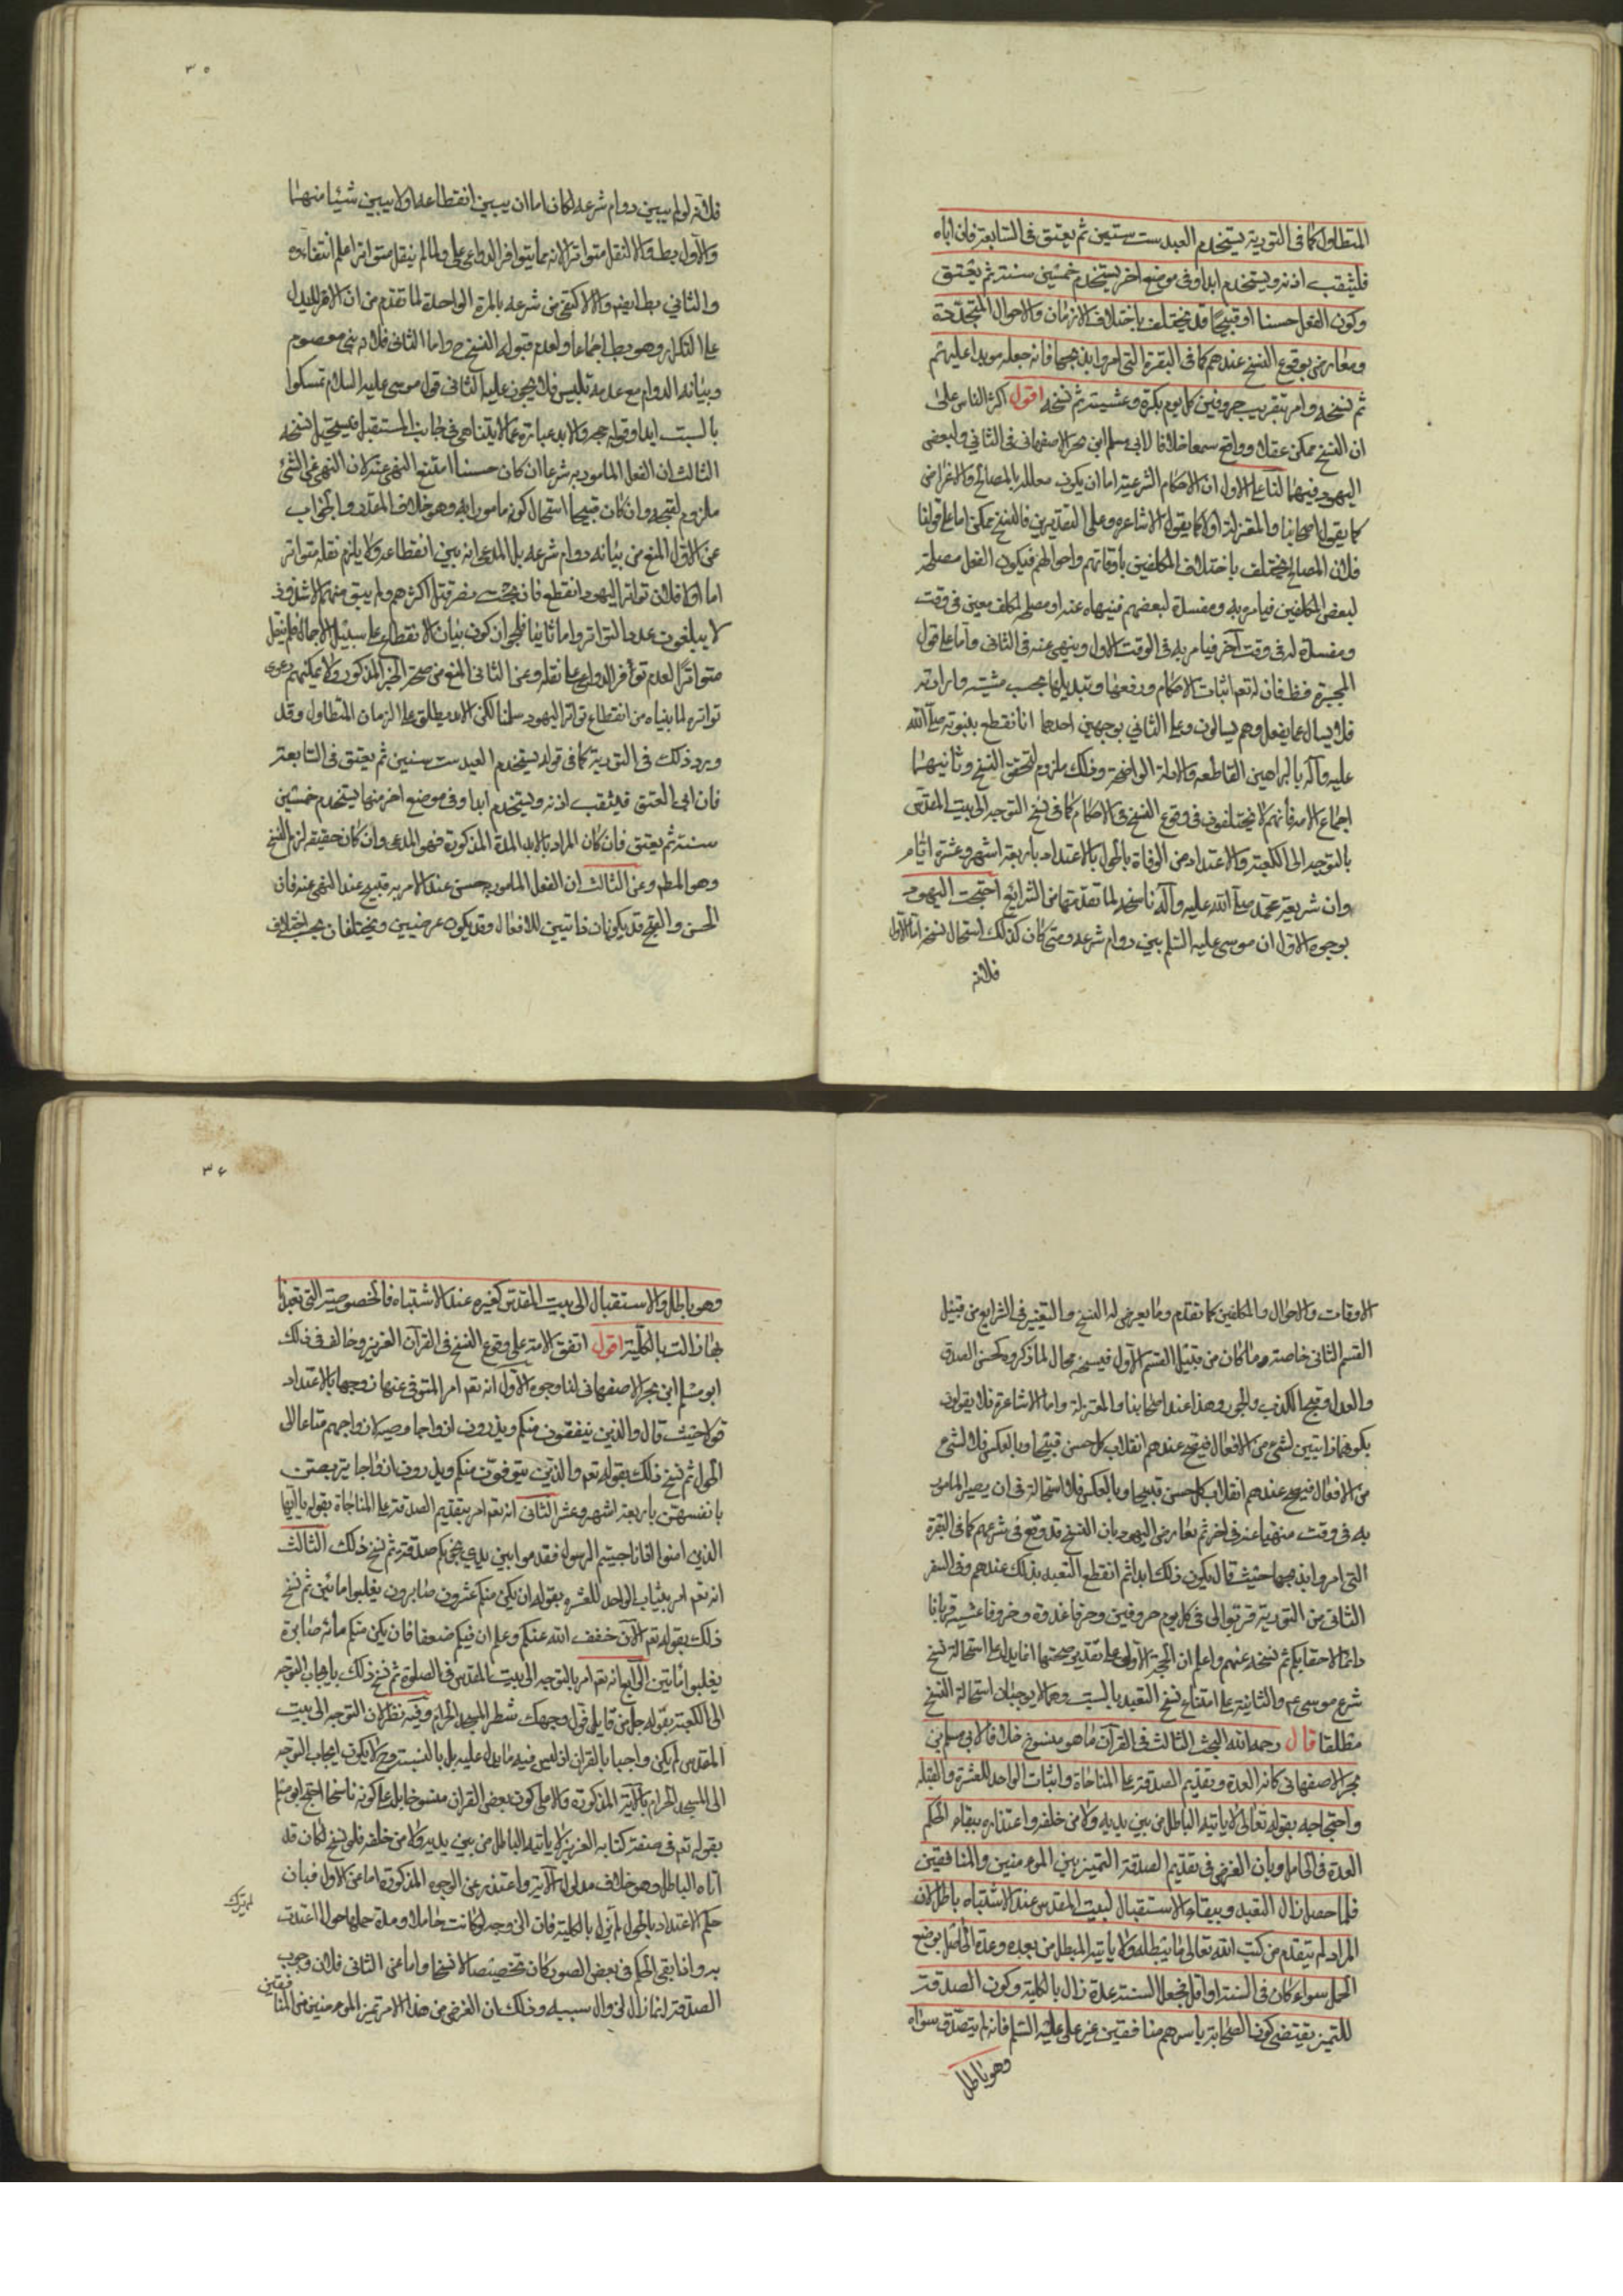 المتطاول كما فى التورية يستخدم العبد ست سنين ثم يعتق فى السابعة فان اباه
فليثقب اذنه ويستخدم ابدا وفى موضع اخر يستخدم خمسين سنة ثم يعتق
وكون الفعل حسنا او قبيحا قد يختلف باختلاف الازمان والاحوال المتجددة
ومعارض بوقوع النسخ عندهم كما فى البقرة التى امروا بذبحها فانه جعله موبدا عليهم
ثم نسخه وامر بتقريب خروفين كل يوم بكرة وعشية ثم نسخه اقول اكثر الناس على
ان النسخ ممكن عقلا وواقع سمعا خلافا لابى مسلم ابن بحر الاصفهانى فى الثانى ولبعض
اليهود فيهما لنا على الاول ان الاحكام الشرعية اما ان يكون معللة بالمصالح والاغراض
كما يقوله اصحابنا والمعتزلة او لا كما يقوله الاشاعرة وعلى التقديرين فالنسخ ممكن اما على قولنا
فلان المصالح يختلف باختلاف المكلفين باوقاتهم واحوالهم فيكون الفعل مصلحة
لبعض المكلفين فيامر به ومفسدة لبعضهم فينهاه عنه او مصلحة لمكلف معين فى وقت
ومفسدة له فى وقت آخر فيامر به فى الوقت الاول وينهى عنه فى الثانى واما على قول
المجبرة فظ فان له تعم اثبات الاحكام ورفعها وتبديلها بحسب مشيته وارادته
فلا يسال عما يفعل وهم يسالون وعلى الثاني بوجهين احدهما انا نقطع بنبوته صلى الله
عليه وآله بالبراهين القاطعه والادلة الواضحة وذلك ملزوم لتحقق النسخ وثانيهما
اجماع الامة فانهم لا يختلفون فى وقوع النسخ فى الاحكام كما فى نسخ التوجه الى بيت المقدس
بالتوجه الى الكعبة والاعتداد من الوفاة بالحول بالاعتداد باربعة اشهر وعشرة ايام
وان شريعة محمد صلى الله عليه وآله ناسخة لما تقدمتها من الشرايع احتجت اليهود
بوجوه الاول ان موسى عليه السلم بين دوام شرعه ومتى كان كذلك استحال نسخه اما الاول
فلانه
٣٥
فلانه لو لم يبين دوام شرعه لكان اما ان يبين انقطاعه او لا يبين شيئا منهما
والاول بط والا لنقل متواترا لانه مما يتوافر الدواعى على ولما لم ينقل متواترا علم انتفاءه
والثاني بط ايضا والا لاكتفى من شرعه بالمرة الواحدة لما تقدم من ان الامر لا يدل
على التكرار وهو بط اجماعا ولعدم قبوله النسخ ح واما الثانى فلانه نبى معصوم
وبيانه الدوام مع عدمه تلبيس فلا يجوز عليه الثانى قول موسى عليه السلام تمسكوا
بالسبت ابدا وقوله حجة والابد عبارة عما لا يتناهى فى جانب المستقبل فيستحيل نسخه
الثالث ان الفعل المامور به شرعا ان كان حسنا امتنع النهى عنه لان النهى عن الشئ
ملزوم لقبحه وان كان قبيحا استحال كونه مامورا به وهو خلاف المقدر والجواب
عن الاول المنع من بيانه دوام شرعه بل المدعى انه بين انقطاعه ولا يلزم نقله متواتر
اما اولا فلان تواتر اليهود انقطع فان بخت نصر قتل اكثرهم ولم يبق منهم الا شذوذ
لا يبلغون عدد التواتر واما ثانيا فلجوازن كون بيان الانقطاع على سبيل الاجمال فلم ينقل
متواترًا لعدم توافر الدواعى على نقله وعن الثانى المنع من صحة الخبر المذكور ولا يمكنهم دعوى
تواتره لما بيناه من انقطاع تواتر اليهود سلمنا لكن الابد يطلق على الزمان المتطاول وقد
ورد ذلك فى التورية كما فى قوله يستخدم العبد ست سنين ثم يعتق فى السابعة
فان ابى العتق فليثقب اذنه ويستخدم ابدا وفى موضع اخر منها يستخدم خمسين
سنة ثم يعتق فان كان المراد بالابد المدة المذكورة فهو المدعى وان كان حقيقة لزم النسخ
وهو المطم وعن الثالث ان الفعل المامور به حسن عند الامر به قبيح عند النهى عنه فان
الحسن والقبح قد يكونان ذاتيين للافعال وقد يكون عرضيين ويختلفان بحسب اختلاف
الاوقات والاحوال والمكلفين كما تقدم وما يعرض له النسخ والتغيير فى الشرايع من قبيل
القسم الثانى خاصة وما كان من قبيل القسم الاول فنسخه محال لما ذكروه كحسن الصدق
والعدل وقبح الكذب والجور وهذا عند اصحابنا والمعتزلة واما الاشاعرة فلا يقولون
بكونهما ذاتيين لشئ من الافعال فيصح عندهم انقلاب كل حسن قبيحا وبالعكس فلا لشئ
من الافعال فيصح عندهم انقلاب كل حسن قبيحا وبالعكس فلا استحالة فى ان يصير المامور
به فى وقت منهيا عنه فى اخر ثم يعارض اليهود بان النسخ قد وقع فى شرعهم كما فى البقرة
التى امروا بذبحها حيث قال يكون ذلك ابدا ثم انقطع التعبد بذلك عندهم وفى السفر
الثانى من التورية قربوا الى فى كل يوم خروفين وخرفا غدوة وخروفا عشية قربانا
دائما لاحقابكم ثم نسخه عنهم واعلم ان الحجة الاولى على تقدير صحتها انما يدل على استحالة نسخ
شرع موسى ع م والثانية على امتناع نسخ التعبد بالسبت وهما لا يوجبان استحالة النسخ
مطلقا قال رحمه الله البحث الثالث فى القرآن ما هو منسوخ خلافا لابى مسلم بن
بحر الاصفهانى كاية العدة وتقديم الصدقة على المناجاة واثبات الواحد للعشرة والقبلة
واحتجاجه بقوله تعالى لا ياتيه الباطل من بين يديه ولا من خلفه واعتذاره ببقاء حكم
العدة فى الحامل وبان الغرض فى تقديم الصدقة التمييز بين المومنين والمنافقين
فلما حصل زال التعبد وببقاء الاستقبال لبيت المقدس عند الاشتباه باطل لان
المراد لم يتقدم من كتب الله تعالى ما يبطله ولا ياتيه المبطل من بعده وعدة الحامل بوضع
الحمل سواء كان فى السنة او اقل فجعل السنة عدة زال بالكلية وكون الصدقة
للتميز يقتضى كون الصحابة باسرهم منافقين غير على عليه السلم فانه لم يتصدق سواه
وهو باطل
٣٦
وهو باطل والاستقبال الى بيت المقدس كغيره عند الاشتباه فالخصوصية التى تعبدنا
بها زالت بالكلية اقول اتفق الامة على وقوع النسخ فى القرآن العزيز وخالف فى ذلك
ابو مسلم ابن بحر الاصفهانى لنا وجوه الاول انه تعم امر المتوفى عنها زوجها بالاعتداد
حولا حيث قال والذين يتفقون منكم ويذرون ازواجا وصية لازواجهم متاعا الى
الحول ثم نسخ ذلك بقوله تعم والذين يتوفون منكم ويذرون ازواجا يتربصن
بانفسهن باربعة اشهر وعشر الثانى انه تعم امر بتقديم الصدقة على المناجاة بقوله يا ايها
الذين امنوا اذا ناجيتم الرسول فقدموا بين يدي نجويكم صدقة ثم نسخ ذلك الثالث
انه تعم امر بثبات الواحد للعشرة بقوله ان يكن منكم عشرون صابرون يغلبوا مائتين ثم نسخ
ذلك بقوله تعم الآن خفف الله عنكم وعلم ان فيكم ضعفا فان يكن منكم مائة صابرة
يغلبوا مائتين الرابع انه تعم امر بالتوجه الى بيت المقدس فى الصلوة ثم نسخ ذلك بايجاب التوجه
الى الكعبة بقوله جل من قايل فول وجهك شطر المسجد الحرام وفيه نظر لان التوجه الى بيت
المقدس لم يكن واجبا بالقران اذ ليس فيه ما يدل عليه بل بالسنة وح لا يكون ايجاب التوجه
الى المسجد الحرام بالآية المذكورة دالا على كون بعض القران منسوخا بل على كونه ناسخا احتج ابو مسلم
بقوله تعم فى صفة كتابه العزيز لا ياتيه الباطل من بين يديه ولا من خلفه فلو نسخ لكان قد
اتاه الباطل وهو خلاف مدلول الآية واعتذر عن الوجوه المذكورة اما عن الاول فبان
حكم الاعتداد بالحول لم يزل بالكلية فان الزوجة لو كانت حاملا ومدة حملها حولا اعتدت
به واذا بقى الحكم فى بعض الصور كان تخصيصا لا نسخا واما عن الثانى فلان وجوب
الصدقة انما زال لزوال سببه وذلك لان الغرض من هذا الامر تميز المومنين من المنا
فقين